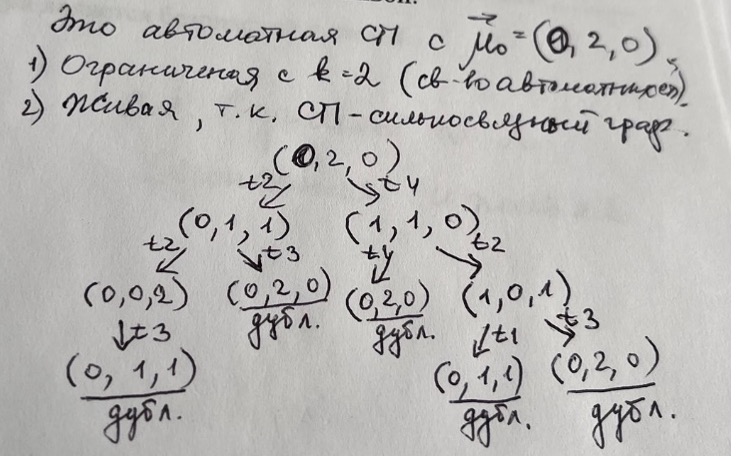 Это автоматная СП с μ₀ = (0, 2, 0),
1) Ограниченая с k = 2 (св-во автоматности).
2) Живая, т.к. СП - сильносвязный граф.
(0, 2, 0)
t2 t4
(0, 1, 1) (1, 1, 0)
t2 t3 t4 t2
(0, 0, 2) (0, 2, 0) (0, 2, 0) (1, 0, 1)
дубл. дубл.
t3 t1 t3
(0, 1, 1) (0, 1, 1) (0, 2, 0)
дубл. дубл. дубл.